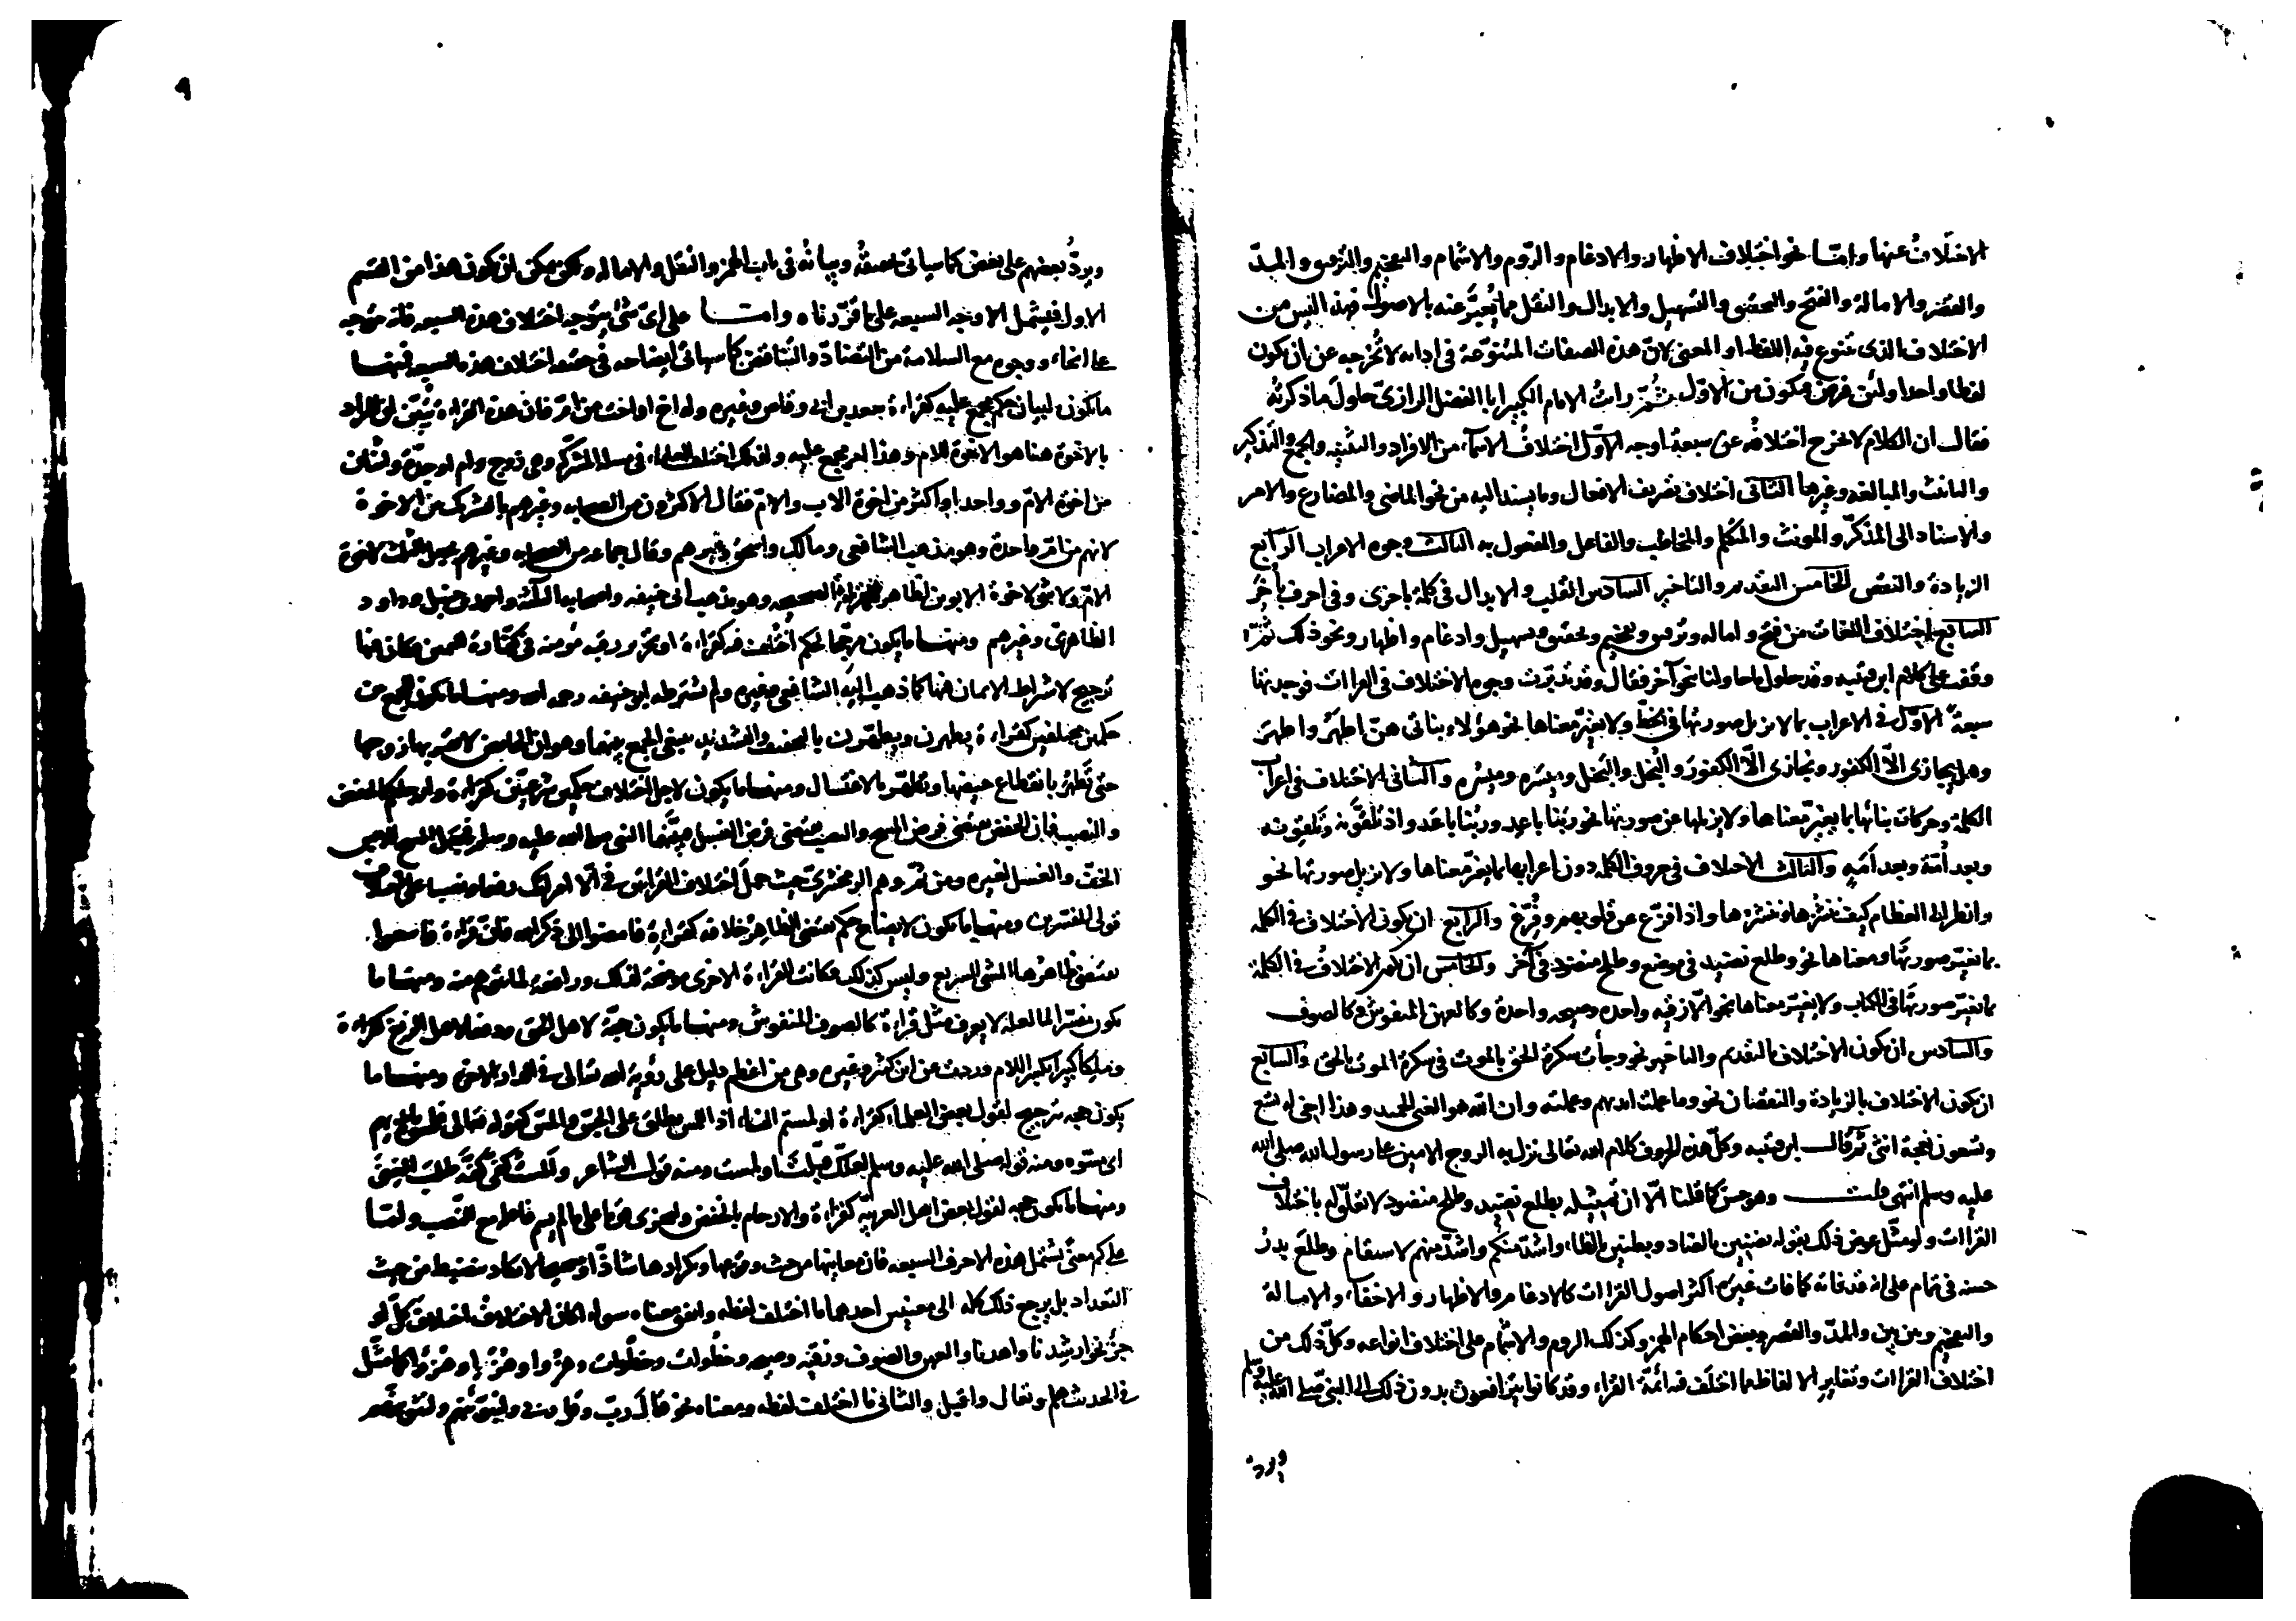 الاختلاف عنها وامّا نحو اختلاف الاظهار والادغام والرّوم والاشمام والتفخيم والترقيق والمدّ
والقصر والامالة والفتح والتحقيق والتسهيل والابدال والنقل مما يُعبَّر عنه بالاصول فهذا ليس من
الاختلاف الذى يتنوع فيه اللفظ او المعنى لانّ هذه الصفات المتنوّعة فى ادائه لا تُخرجه عن ان يكون
لفظا واحدا ولئن فرض فيكون من الاوّل ثمّ رايت الامام الكبير ابا الفضل الرازىّ حاول ما ذكرته
فقال ان الكلام لا يخرج اختلافه عن سبعة اوجه الاوّل اختلاف الاسماء من الافراد والتثنيه والجمع والتذكير
والتانيث والمبالغه وغيرها الثانى اختلاف تصريف الافعال وما يسند اليه من نحو الماضى والمضارع والامر
والاسناد الى المذكّر والمونث والمتكلم والمخاطب والفاعل والمفعول به الثالث وجوه الاعراب الرابع
الزيادة والنقص الخامس التقديم والتاخير السادس القلب والابدال فى كلمة باخرى وفى احرف بأُخَرَ
السابع اختلاف اللغات من فتح واماله وترقيق وتفخيم وتحقيق وتسهيل وادغام واظهار ونحو ذلك ثمّ
وقفت على كلام ابن قتيبه وقد حاول ما حاولنا بنحو آخر فقال وقد تدبّرت وجوه الاختلاف فى القراات فوجدتها
سبعةً الاوّل فى الاعراب بما لا يزيل صورتها فى الخطّ ولا يغيّر معناها نحو هؤلاء بناتى هنّ اطهرُ واطهرَ
وهل يجازى الاّ الكفور ونجازى الاّ الكفورَ والبُخل والبَخَل وميسَره وميسُره والثانى الاختلاف فى اعراب
الكلمة وحركات بنائها بما يغيّر معناها ولا يزيلها عن صورتها نحو ربّنا باعِد وربُّنا باعَد واذ تلَقَّونه وتَلِقونه
وبعد أُمّة وبعد أَمَهٍ والثالث الاختلاف فى حروف الكلمه دون اعرابها بما يغيّر معناها ولا يزيل صورتها نحو
وانظر الى العظام كيف ننشزها وننشرها واذا فزّع عن قلوبهم وفُرّغ والرابع ان يكون الاختلاف فى الكلمه
بما يغيّر صورتها ومعناها نحو وطلع نضيد فى موضع وطلح منضود فى آخر والخامس ان يكون الاختلاف فى الكلمة
بما يغيّر صورتها فى الكتاب ولا يغيّر معناها نحو الاّ زقيه واحده وصيحه واحدة وكالعهن المنفوش وكالصوف
والسادس ان يكون الاختلاف بالتقديم والتاخير نحو وجأت سكرة الحق بالموت فى سكرة الموت بالحق والسابع
ان يكون الاختلاف بالزيادة والنقصان نحو وما عملت ايديهم وعملته وان الله هو الغنى الحميد وهذا اخى له تسع
وتسعون نعجة انثى ثم قال ابن قتيبه وكلّ هذه الحروف كلام الله تعالى نزل به الروح الامين على رسول الله صلى الله
عليه وسلم انتهى قلت وهو حسن كما قلنا الاّ ان تمثيله بطلع نضيد وطلح منضود لا تعلّق له باختلاف
القراات ولو مثّل عوض ذلك بقوله بضنين بالضاد وبظنين بالظاء واشدّ منكم واشدّ منهم لاستقام وطلع بدرُ
حسنه فى تمام على انه قد فاته كما فات غيره اكثر اصول القراات كالادغام والاظهار والاخفاء والامالة
والتفخيم وبين بين والمدّ والقصر وبعض احكام الهمز وكذلك الروم والاشمام على اختلاف انواعه وكلّ ذلك من
اختلاف القراات وتغاير الالفاظ مما اختلف فيه أئمة القراء وقد كانوا يترافعون بدون ذلك الى النبىّ صلى الله عليه وسلم
ويردّ
٩
ويردُّ بعضهم على بعض كما سياتى تحقيقُه وبيانُه فى باب الهمز والنقل والاماله ولكن يمكن ان يكون هذا من القسم
الاول فيشمل الاوجه السبعه على ما قرّرناه وامّا على اىّ شئ يتوجه اختلاف هذه السبعه فانه يتوجه
على انحاء ووجوه مع السلامة من التضادّ والتناقض كما سياتى ايضاحه فى حقيقه اختلاف هذه السبعه فمنها
ما يكون لبيان حكم مجمع عليه كقراءة سعد بن ابى وقاص وغيره وله اخ او اخت من امّ فان هذه القراءة تُبيّن ان المراد
بالاخوة هنا هو الاخوة للام وهذا امر مجمع عليه ولذلك اختلف العلماء فى مسئلة المشرّكة وهى زوج وام او جدّة واثنان
من اخوة الامّ وواحد او اكثر من اخوة الاب والامّ فقال الاكثرون من الصحابه وغيرهم بالتشريك بين الاخوة
لانهم من امّ واحدة وهو مذهب الشافعى ومالك واسحق وغيرهم وقال جماعه من الصحابه وغيرهم يجعل الثلث لاخوة
الامّ ولا شئ لاخوة الابوين لظاهر القراءة الصحيحه وهو مذهب ابى حنيفه واصحابه الثلثة واحمد بن حنبل وداود
الظاهرىّ وغيرهم ومنها ما يكون مرجّحا لحكم اختُلف فيه كقراءة او تحرير رقبة مؤمنه فى كفّارة اليمين فكان فيها
ترجيح لاشتراط الايمان فيها كما ذهب اليه الشافعى وغيره ولم يشترطه ابو حنيفه رحمه الله ومنها ما يكون للجمع بين
حكمين مختلفين كقراءة يطهرن ويطّهّرن بالتخفيف والتشديد ينبغى الجمع بينهما وهو ان الحائض لا يقربها زوجها
حتى تَطهُرَ بانقطاع حيضها وتطّهّر بالاغتسال ومنها ما يكون لاجل اختلاف حكمين شرعيّين كقراءة وارجلكم بالخفض
والنصب فان الخفض يقتضى فرض المسح والنصب يقتضى فرض الغسل فبيّنهما النبى صلى الله عليه وسلم فجعل المسح للابس
الخفّ والغسل لغيره ومن ثمّ وهم الزمخشرىّ حيث حمل اختلاف القراءتين فى الاّ امراتك رفعا ونصبا على اختلاف
قولى المفسّرين ومنها ما يكون لايضاح حكم يقتضى الظاهر خلافه كقراءة فامضوا الى ذكر الله فانّ قراءة فاسعوا
يقتضى ظاهرُها المشى السريع وليس كذلك فكانت القراءة الاخرى موضحة لذلك ورافعة لما يتوهم منه ومنها ما
يكون مفسّرا لما لعله لا يعرف مثل قراءة كالصوف المنفوش ومنها ما يكون حجّة لاهل الحق ودفعا لاهل الزيغ كقراءة
وملِكا كبيرا بكسر اللام وردت عن ابن كثير وغيره وهى من اعظم دليل على رؤية الله تعالى فى الدار الاخرة ومنها ما
يكون حجه بترجيح لقول بعض العلماء كقراءة او لمستم النساء اذ اللمس يطلق على الجسّ والمسّ كقوله تعالى فلمسوه بايديهم
اى مسّوه ومنه قوله صلى الله عليه وسلم لعلك قبّلت او لمست ومنه قول الشاعر والمستُ كفّى كفَّه طلبَ الغِنى
ومنها ما يكون حجه لقول بعض اهل العربيّه كقراءة والارحام بالخفض وليجزى قوما على ما لم يسم فاعله مع النصب وامّا
على كم معنًى تشتمل هذه الاحرف السبعه فان معانيها من حيث وقوعها وتكرارها شاذّا وصحيحا لا تكاد تنضبط من حيث
التعداد بل يرجع ذلك كله الى معنيين احدهما ما اختلف لفظه واتفق معناه سواء كان الاختلاف اختلاف كلّ او
جزء نحو ارشدنا واهدنا والعهن والصوف وزقيه وصيحه وخطوات وخطْوات وهزُوا وهُزْءا وهُزُؤا كما مثّل
فى الحديث هلم وتعال واقبل والثانى ما اختلف لفظه ومعناه نحو قال ربّ وقل ربّ ولنبوّئنّهم ولنثوينّهم